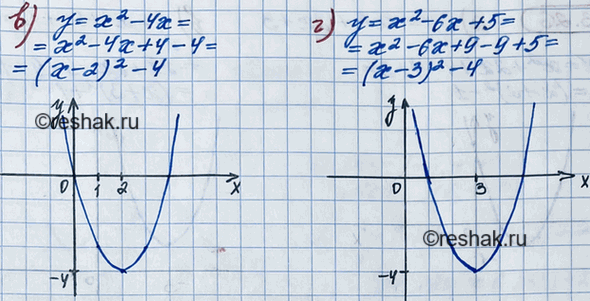 в) y = x² - 4x =
= x² - 4x + 4 - 4 =
= (x - 2)² - 4
y
©reshak.ru
0 1 2 x
-4
г) y = x² - 6x + 5 =
= x² - 6x + 9 - 9 + 5 =
= (x - 3)² - 4
y
0 3 x
©reshak.ru
-4